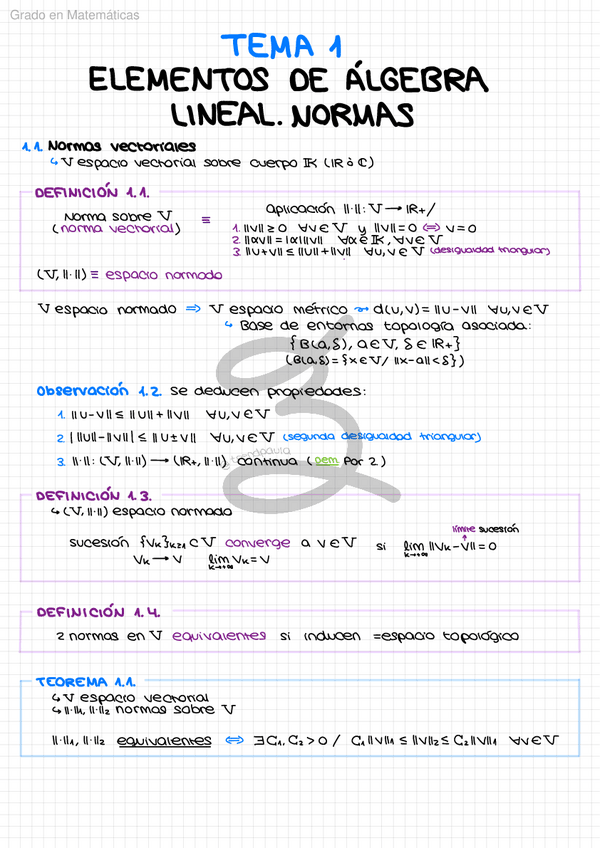 Grado en Matemáticas
TEMA 1
ELEMENTOS DE ÁLGEBRA
LINEAL. NORMAS
1.1. Normas vectoriales
↳ V espacio vectorial sobre cuerpo K (ℝ ò ℂ)
DEFINICIÓN 1.1.
Norma sobre V
(norma vectorial)
≡
aplicación ‖·‖: V → ℝ+ /
1. ‖v‖ ≥ 0 ∀v ∈ V y ‖v‖ = 0 ⟺ v = 0
2. ‖αv‖ = |α|‖v‖ ∀α ∈ K, ∀v ∈ V
3. ‖u+v‖ ≤ ‖u‖ + ‖v‖ ∀u,v ∈ V (desigualdad triangular)
(V, ‖·‖) ≡ espacio normado
V espacio normado ⇒ V espacio métrico ⤳ d(u,v) = ‖u-v‖ ∀u,v ∈ V
↳ Base de entornos topología asociada:
{B(a,δ), a ∈ V, δ ∈ ℝ+}
(B(a,δ) = {x ∈ V / ‖x-a‖ < δ})
Observación 1.2. Se deducen propiedades:
1. ‖u-v‖ ≤ ‖u‖ + ‖v‖ ∀u,v ∈ V
2. |‖u‖-‖v‖| ≤ ‖u±v‖ ∀u,v ∈ V (segunda desigualdad triangular)
3. ‖·‖: (V, ‖·‖) → (ℝ+, ‖·‖) continua (Dem por 2)
DEFINICIÓN 1.3.
↳ (V, ‖·‖) espacio normado
límite sucesión
sucesión {Vk}k≥1 ⊂ V converge a v ∈ V si lim k→+∞ ‖Vk - V‖ = 0
Vk → V lim k→+∞ Vk = V
DEFINICIÓN 1.4.
2 normas en V equivalentes si inducen = espacio topológico
TEOREMA 1.1.
↳ V espacio vectorial
↳ ‖·‖1, ‖·‖2 normas sobre V
‖·‖1, ‖·‖2 equivalentes ⟺ ∃ C1, C2 > 0 / C1‖v‖1 ≤ ‖v‖2 ≤ C2‖v‖1 ∀v ∈ V